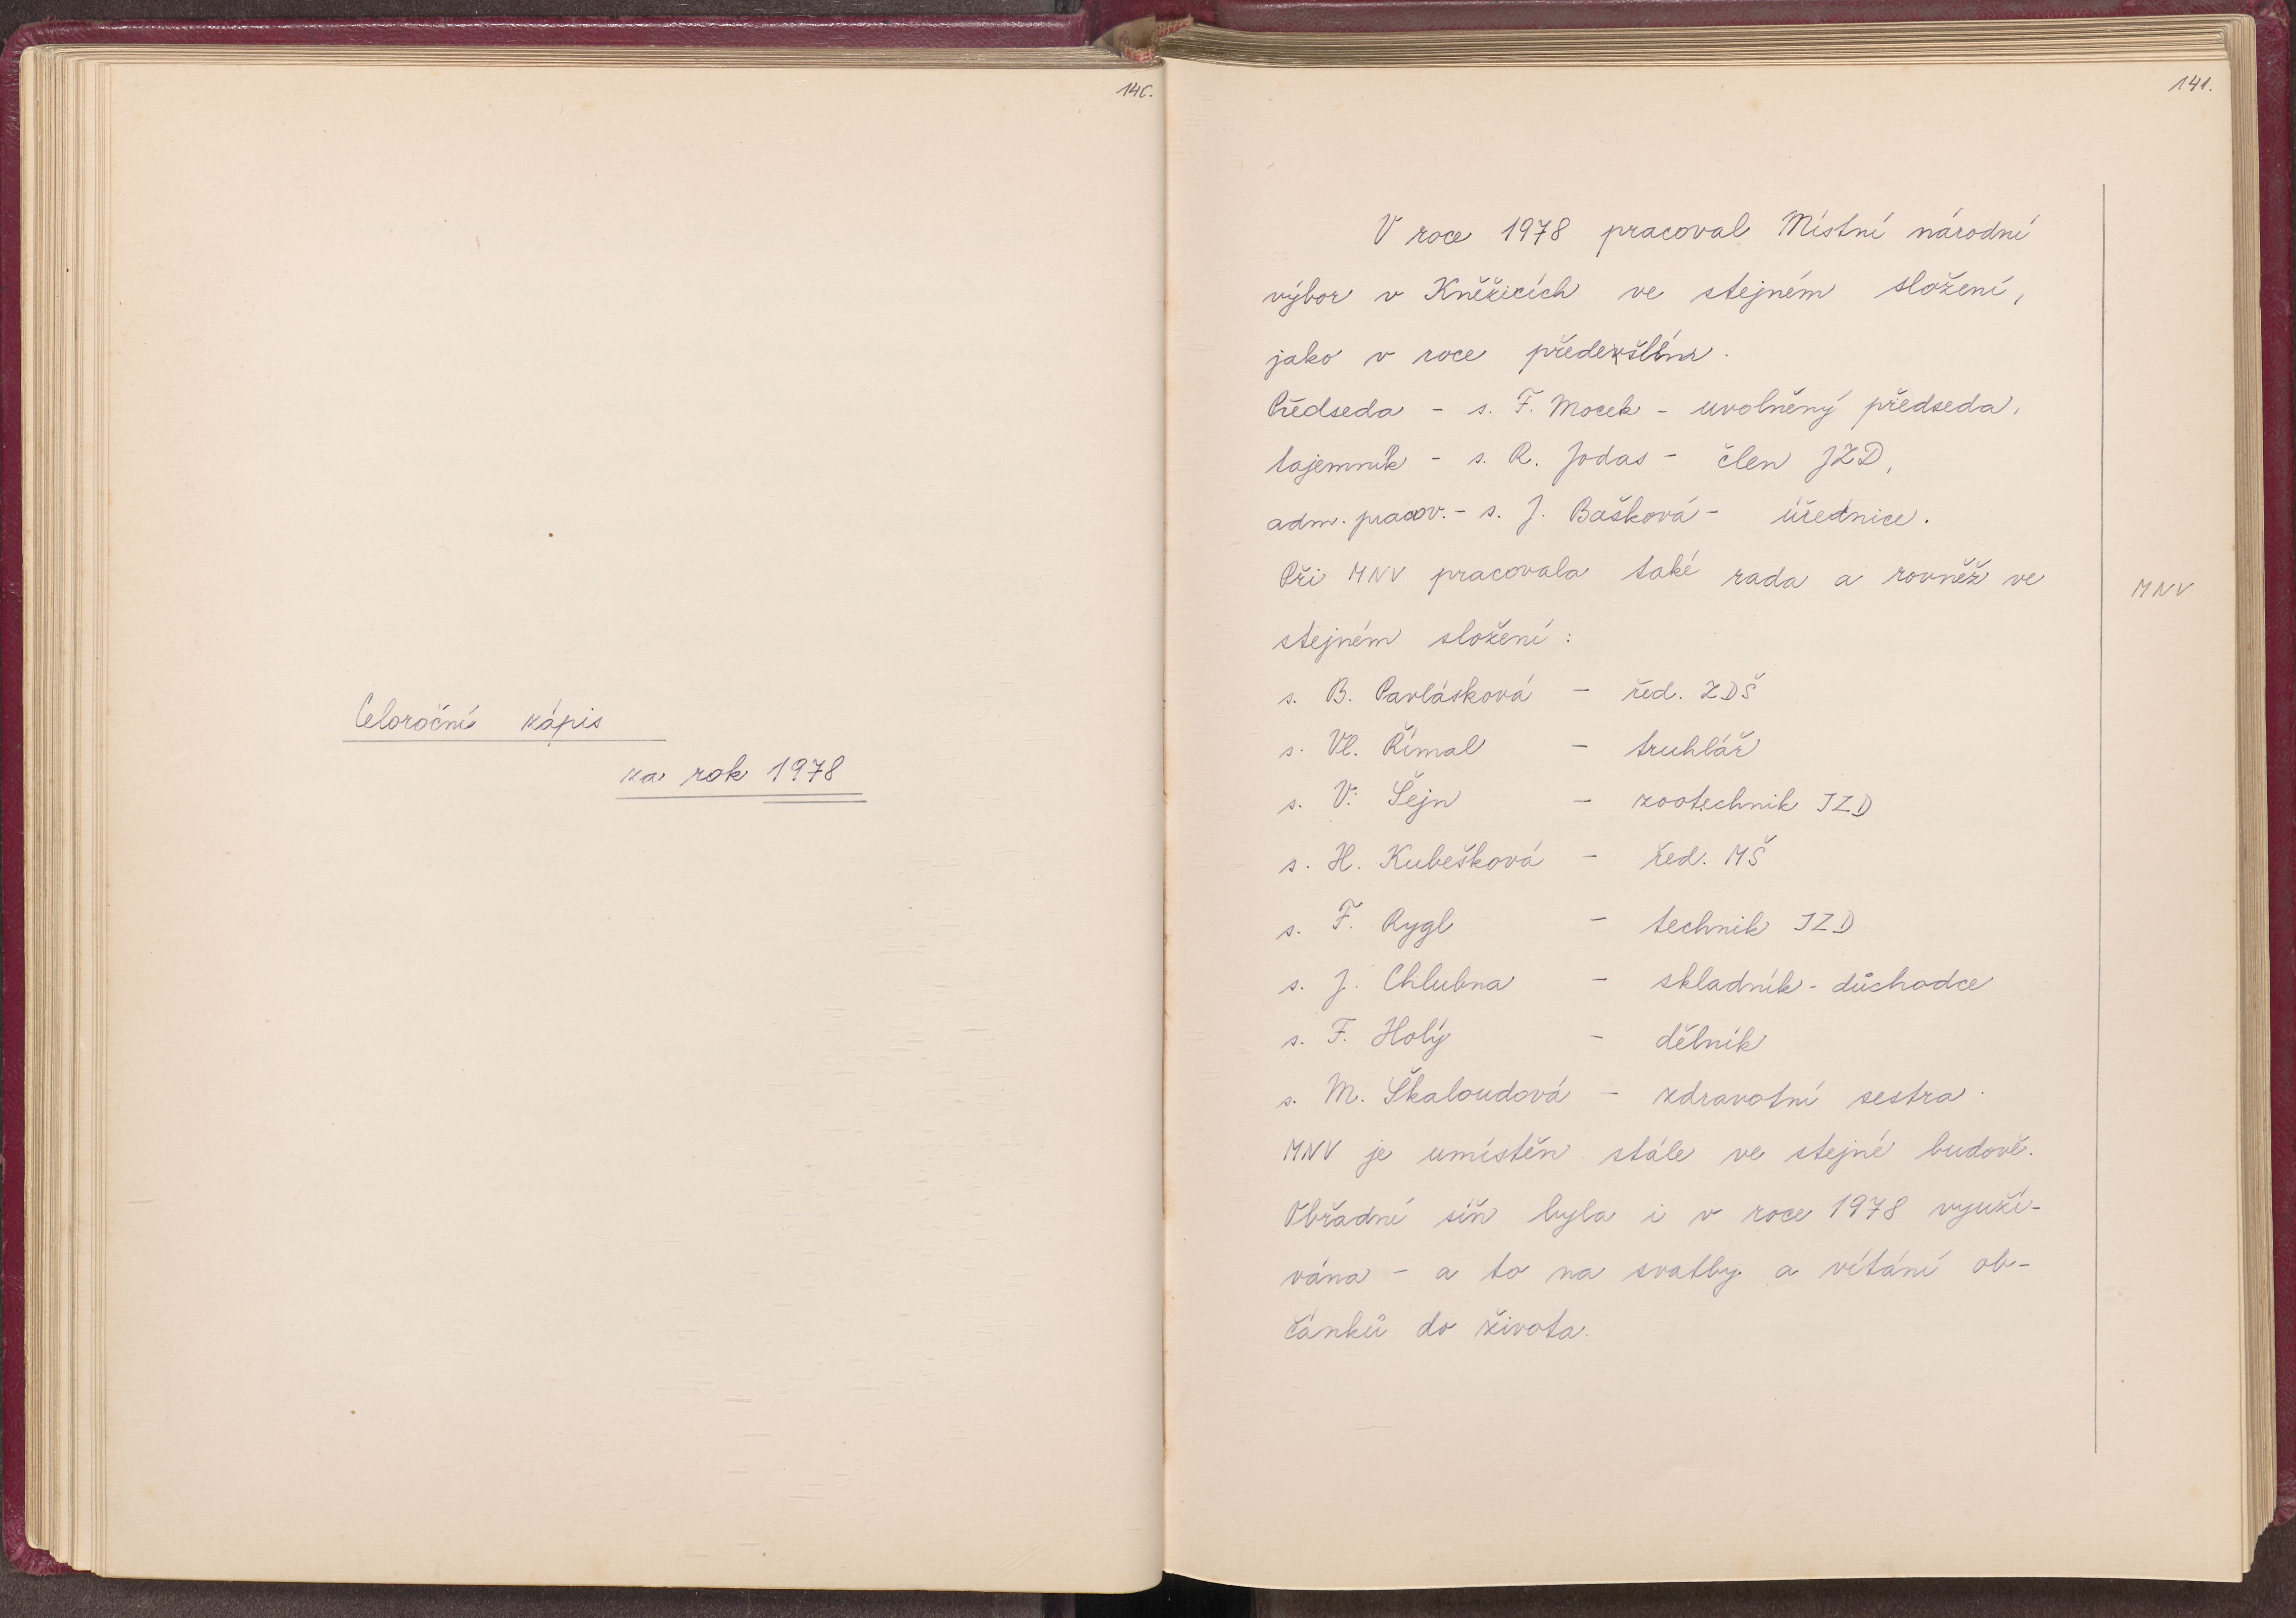 140.
Celoroční zápis
za rok 1978
141.
V roce 1978 pracoval Místní národní
výbor v Kněžicích ve stejném složení,
jako v roce předešlém.
Předseda - s. F. Mocek - uvolněný předseda,
tajemník - s. R. Jodas - člen JZD,
adm. pracov. - s. J. Bašková - úřednice.
Při MNV pracovala také rada a rovněž ve
MNV
stejném složení:
s. B. Pavlásková - řed. ZDŠ
s. Vl. Římal - truhlář
s. V. Šejn - zootechnik JZD
s. H. Kubešková - řed. MŠ
s. F. Rygl - technik JZD
s. J. Chlubna - skladník - důchodce
s. F. Holý - dělník
s. M. Škaloudová - zdravotní sestra.
MNV je umístěn stále ve stejné budově.
Obřadní síň byla i v roce 1978 využí-
vána - a to na svatby a vítání ob-
čánků do života.